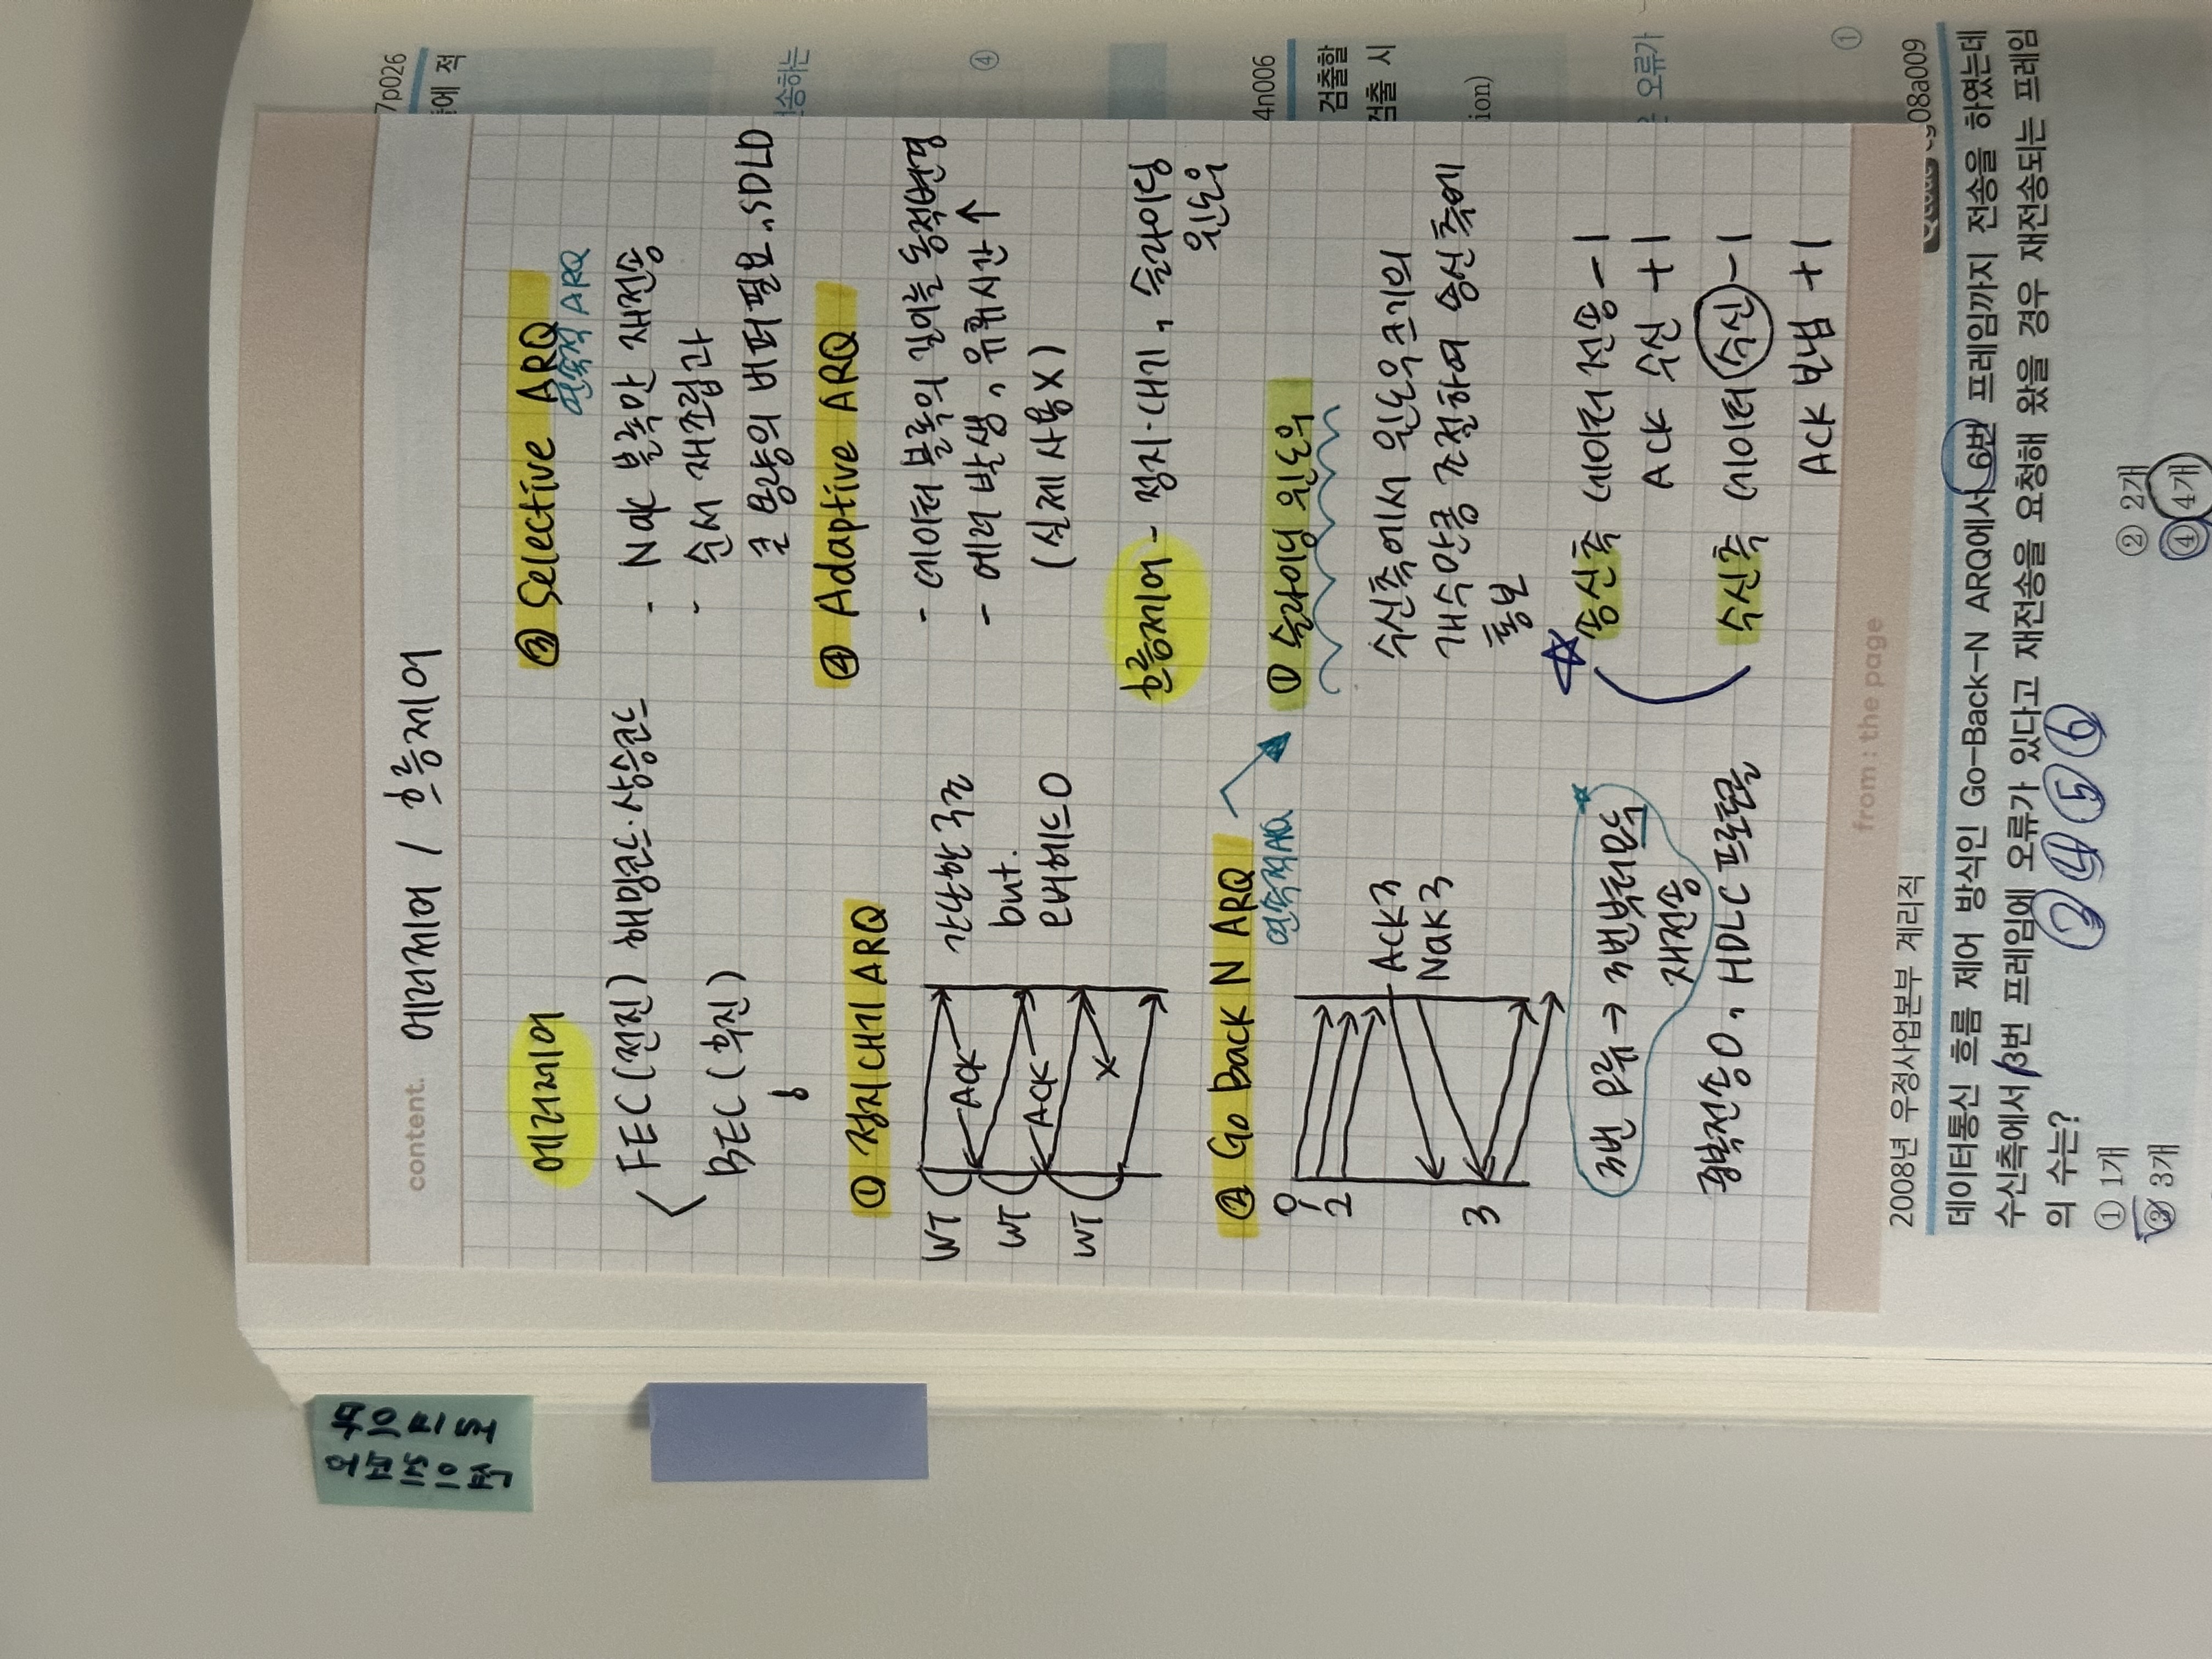 content. 에러제어 / 흐름제어
에러제어
FEC (전진) 해밍코드·상승코드
BEC (후진)
① 정지대기 ARQ
WT
WT
WT
ACK
ACK
X
간단한 구조
but.
오버헤드O
② Go Back N ARQ
연속적ARQ
0
1
2
3
ACK3
NaK3
3번 오류 → 3번부터 모두
재전송
광박전송O, HDLC 프로토콜
③ Selective ARQ
연속적 ARQ
- Nak 블록만 재전송
- 순서 재조립과
큰 용량의 버퍼 필요..SDLD
④ Adaptive ARQ
- 데이터 블록의 길이를 동적변경
- 에러 발생, 유휴시간↑
(실제 사용X)
흐름제어 - 정지·대기, 슬라이딩
윈도우
① 슬라이딩 윈도우
수신측에서 윈도우 크기의
개수만큼 조절하여 송신측에
통보
☆ 송신측 데이터 전송 -1
ACK 수신 +1
수신측 데이터 수신 -1
ACK 보냄 +1
from : the page
7p026
에 적
전송하는
④
4n006
검출할
검출 시
ion)
오류가
①
08a009
2008년 우정사업본부 계리직
데이터통신 흐름 제어 방식인 Go-Back-N ARQ에서 6번 프레임까지 전송을 하였는데
수신측에서 3번 프레임에 오류가 있다고 재전송을 요청해 왔을 경우 재전송되는 프레임
의 수는?
③ ④ ⑤ ⑥
① 1개 ② 2개
③ 3개 ④ 4개